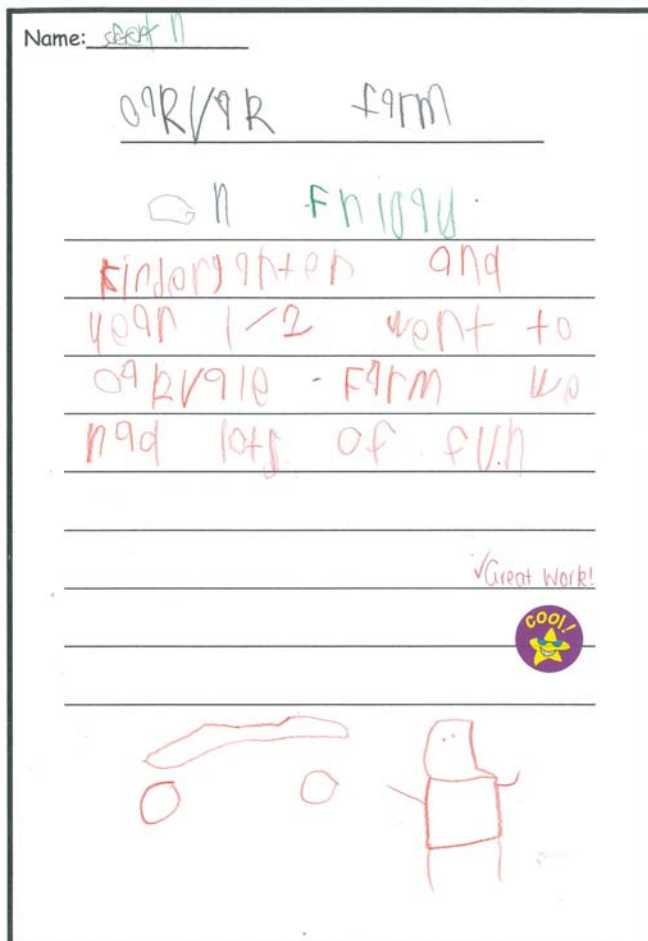 Name:
oakvak farm
on Friday.
kindergarten and
year 1/2 went to
oakvale farm we
had lots of fun
✓Great work!
COOL!